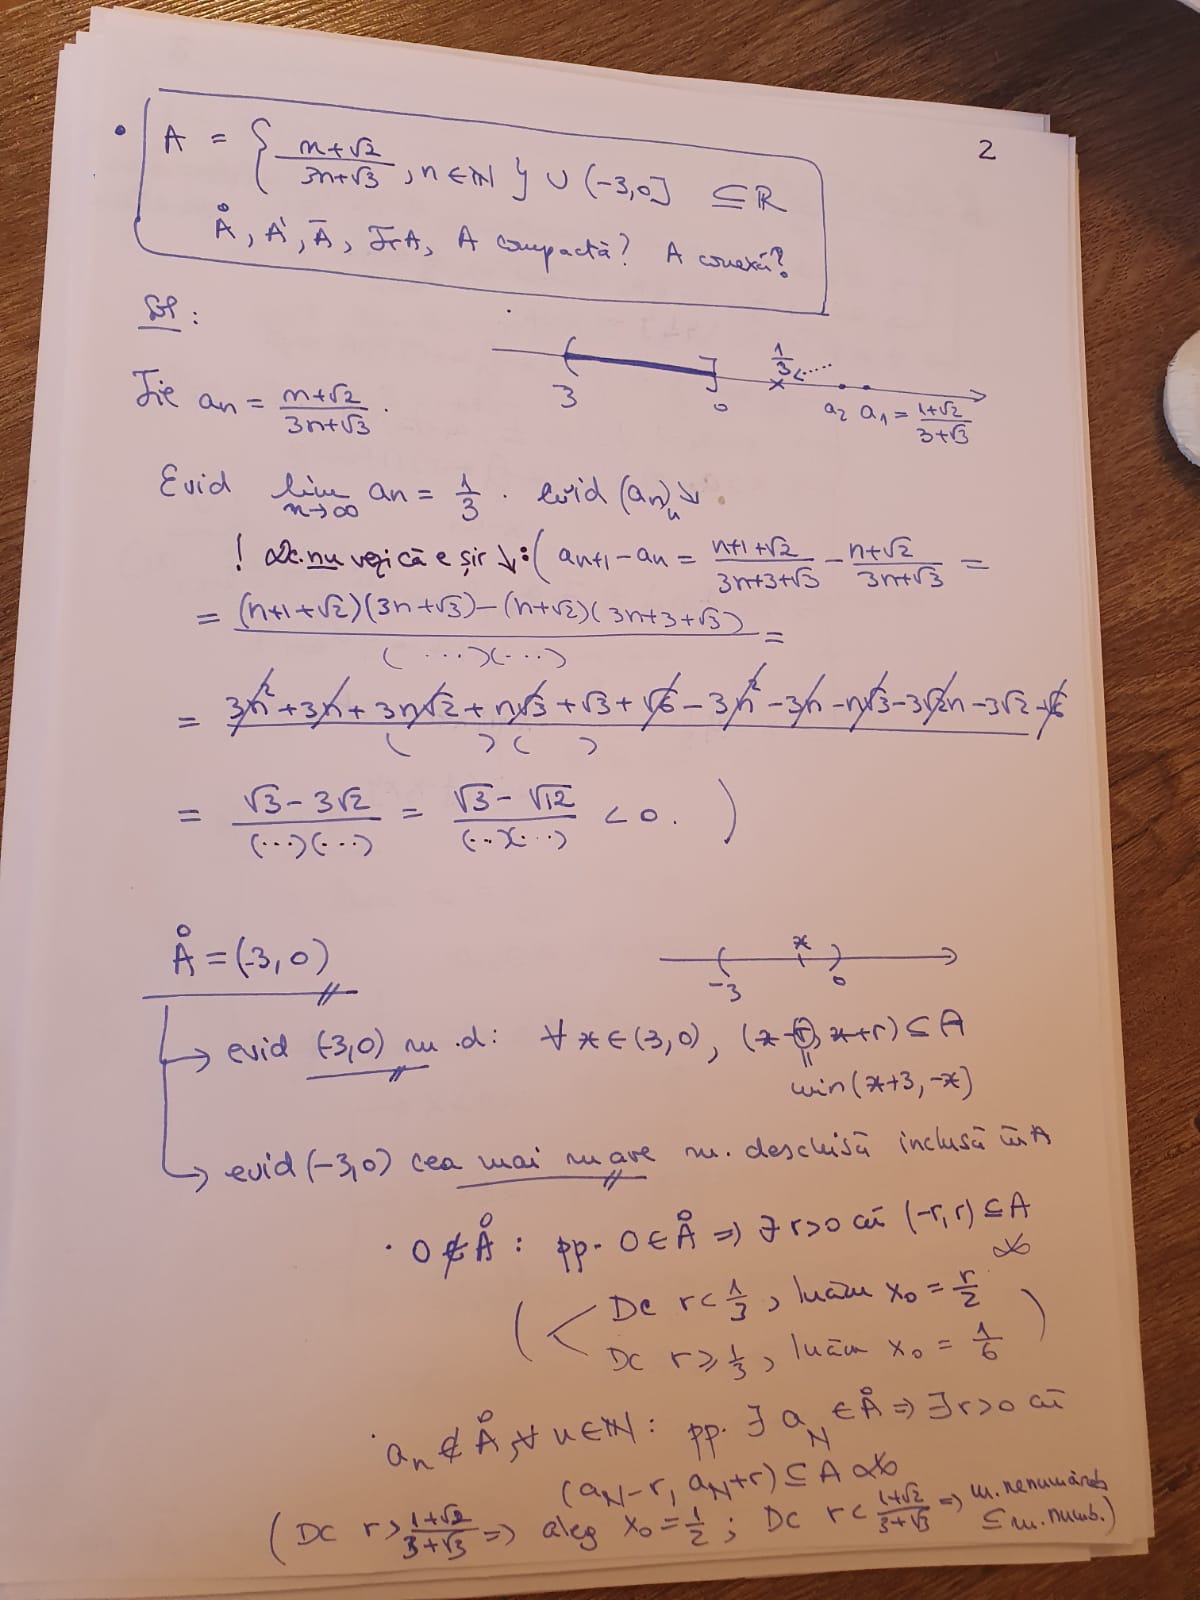 2
• A = { (n+√2)/(3n+√3) , n∈ℕ } ∪ (-3,0] ⊆ℝ
Å, A', Ā, FrA, A compactă? A conexă?
:
3 0 1/3 <····· a₂ a₁ = (1+√2)/(3+√3)
Fie aₙ = (n+√2)/(3n+√3) .
Evid lim n→∞ aₙ = 1/3 . evid (aₙ)ₙ↘.
! Dc. nu vezi că e șir ↘: ( aₙ₊₁ - aₙ = (n+1+√2)/(3n+3+√3) - (n+√2)/(3n+√3) =
= ((n+1+√2)(3n+√3)-(n+√2)(3n+3+√3))/((····)(····)) =
= (3n²+3n+3n√2+n√3+√3+√6-3n²-3n-n√3-3√2n-3√2-√6)/(( )( ))
= (√3-3√2)/((···)(···)) = (√3-√12)/((···)(···)) < 0. )
Å = (-3, 0)
-3 x 0
→ evid (-3,0) m.d: ∀ x∈(3,0), (x-r, x+r) ⊆ A
r = min(x+3, -x)
→ evid (-3,0) cea mai mare m. deschisă inclusă în A
· 0 ∉ Å : pp. 0∈Å ⇒ ∃ r>0 aî (-r,r) ⊆ A
( < Dc r < 1/3, luăm x₀ = r/2
Dc r ≥ 1/3, luăm x₀ = 1/6 )
· aₙ ∉ Å, ∀ n∈ℕ : pp. ∃ a_N ∈ Å ⇒ ∃ r>0 aî
(a_N-r, a_N+r) ⊆ A
( Dc r > (1+√2)/(3+√3) ⇒ aleg x₀ = 1/2 ; Dc r < (1+√2)/(3+√3) ⇒ m. nenumărab
⊆ m. numb.)